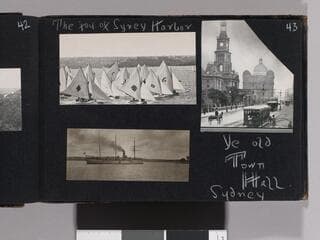 42
The joy of Syney Harbor
43
Ye old
Town
Hall
Sydney